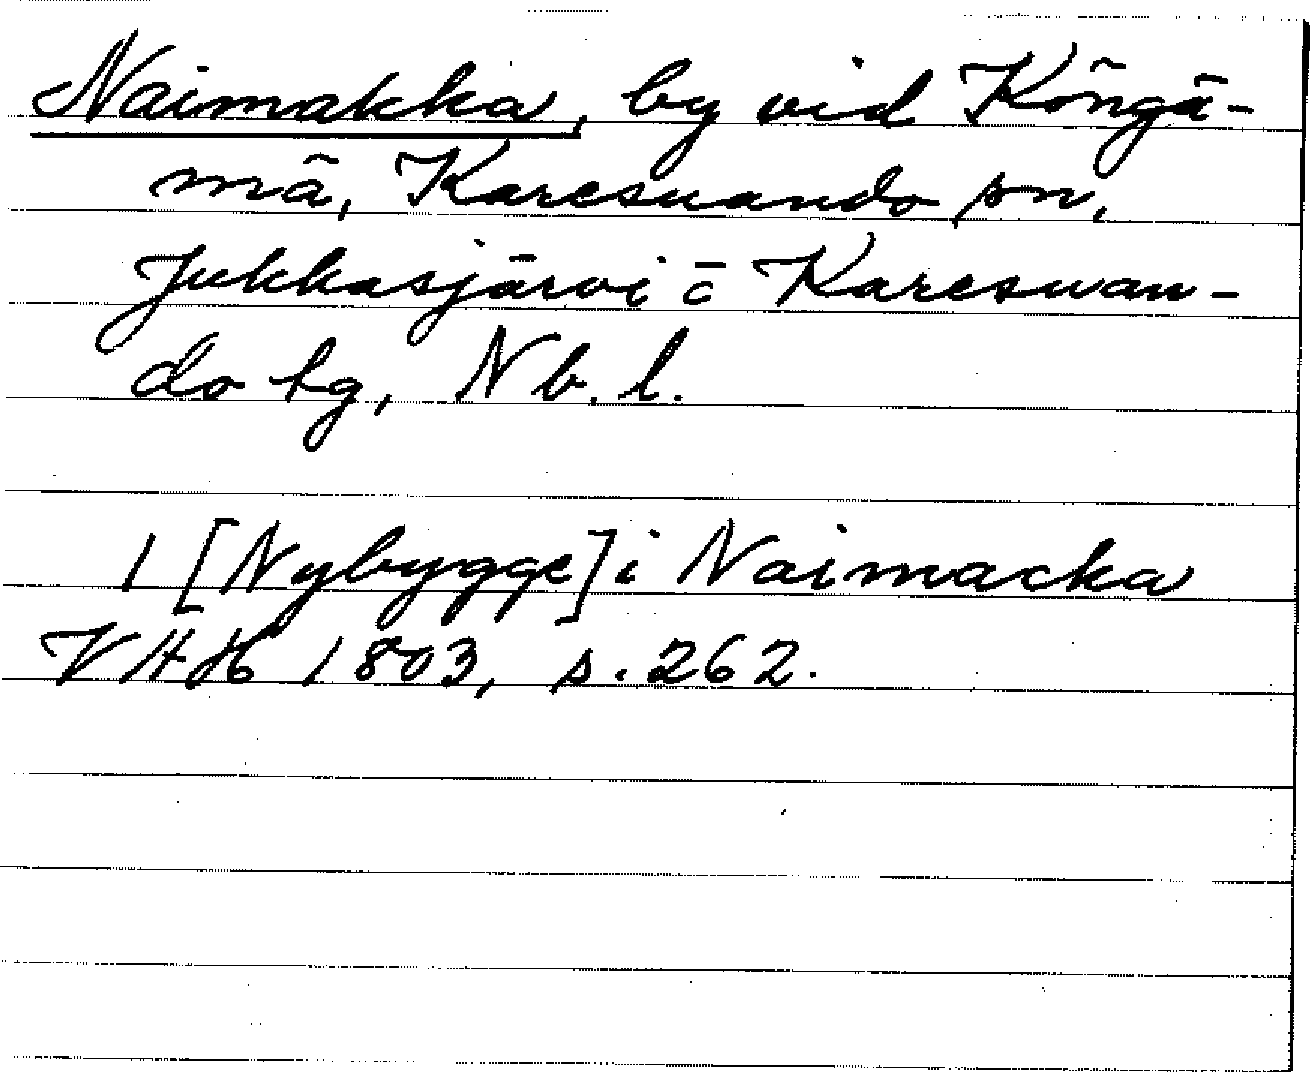 Naimakka, by vid Köngä-
mä, Karesuando sn,
Jukkasjärvi o Karesuan-
do tg, Nb. l.
1 [Nybygge] i Naimacka
VHH 1803, s. 262.